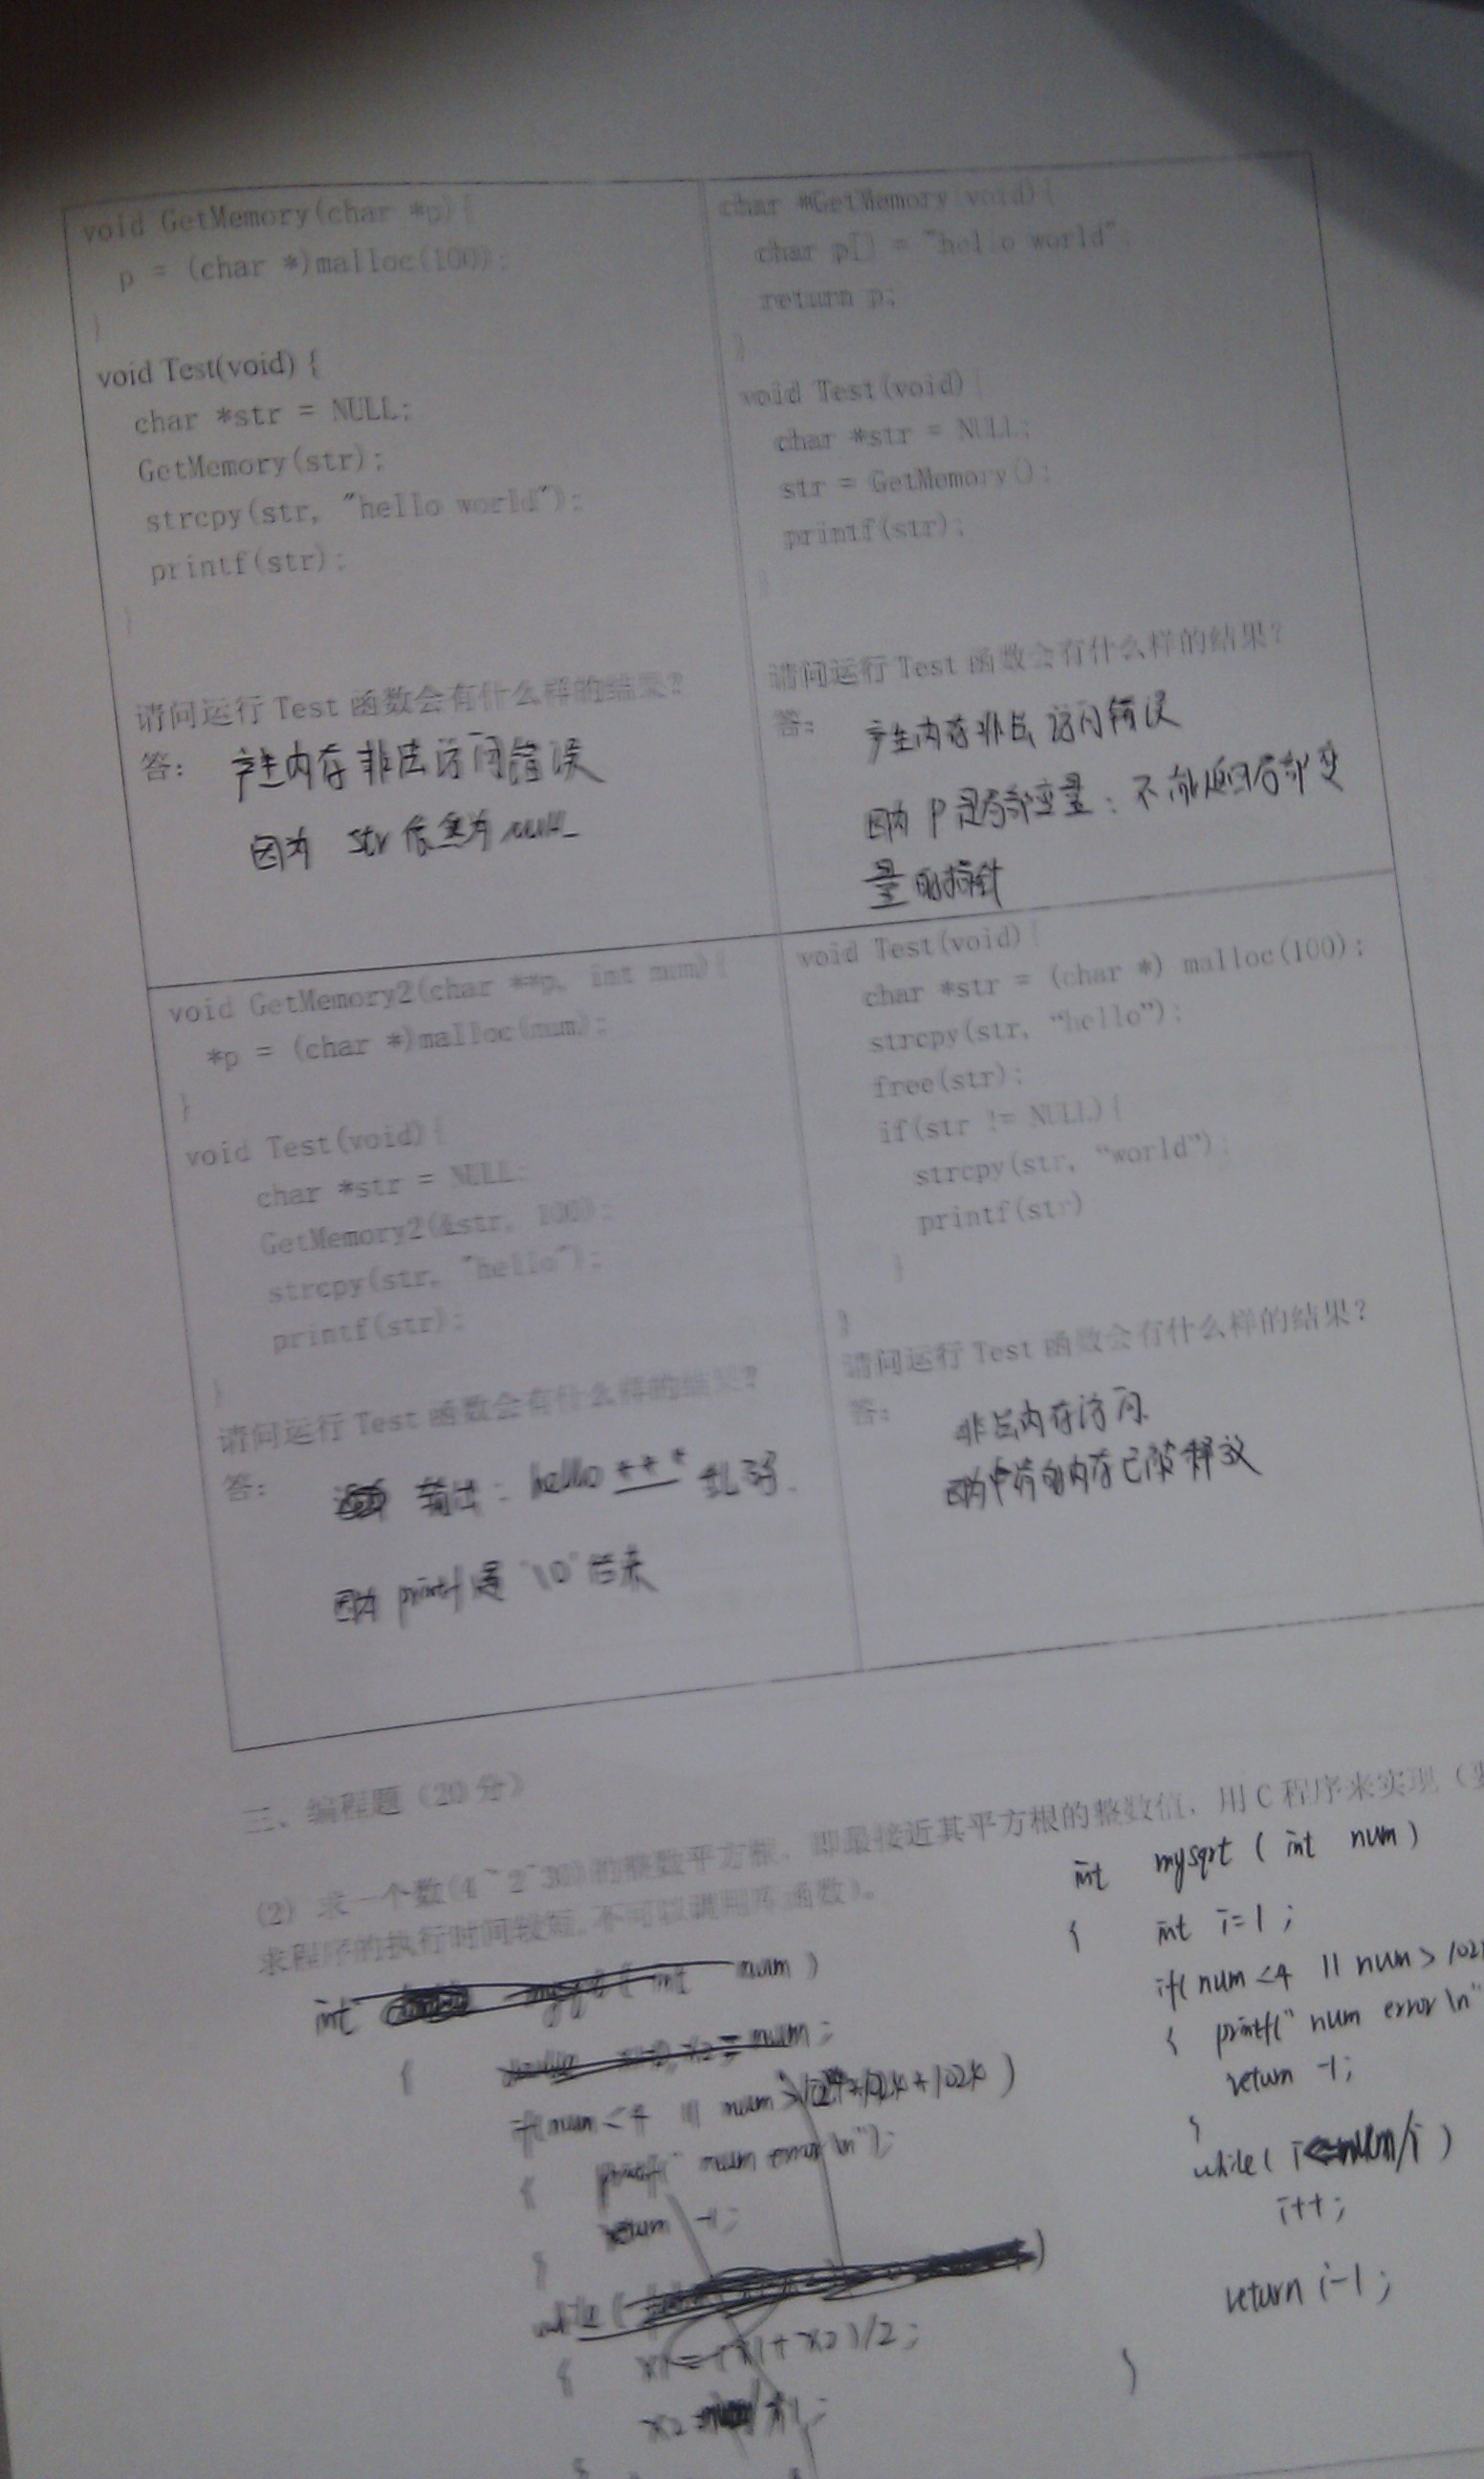 void GetMemory(char *p){
p = (char *)malloc(100);
}
void Test(void) {
char *str = NULL;
GetMemory(str);
strcpy(str, "hello world");
printf(str);
}
请问运行 Test 函数会有什么样的结果?
答: 产生内存非法访问错误
因为 str 依然为 NULL
char *GetMemory(void){
char p[] = "hello world";
return p;
}
void Test(void){
char *str = NULL;
str = GetMemory();
printf(str);
}
请问运行 Test 函数会有什么样的结果?
答: 产生内存非法访问错误
因为 P 是局部变量: 不能返回局部变
量的指针
void GetMemory2(char **p, int num){
*p = (char *)malloc(num);
}
void Test(void){
char *str = NULL;
GetMemory2(&str, 100);
strcpy(str, "hello");
printf(str);
}
请问运行 Test 函数会有什么样的结果?
答: 输出: hello *** 乱码.
因为 printf 是 "\0" 结束
void Test(void){
char *str = (char *) malloc(100);
strcpy(str, “hello”);
free(str);
if(str != NULL){
strcpy(str, “world”);
printf(str)
}
}
请问运行 Test 函数会有什么样的结果?
答: 非法内存访问.
内存已被释放
三、编程题（20 分）
(2) 求一个数(4~2^30)的整数平方根，即最接近其平方根的整数值，用 C 程序来实现（要
求程序的执行时间较短,不可以调用库函数)。
int mysqrt( int num )
{
num;
if(num<4 || num>1024*1024*1024)
{ printf(" num error\n");
return -1;
}
while (
)
{ x1=(x1+x2)/2;
x2 x1;
}
int mysqrt ( int num )
{ int i=1 ;
if( num <4 || num > 102
{ printf(" num error \n"
return -1;
}
while( i<=num/i )
i++;
return i-1 ;
}